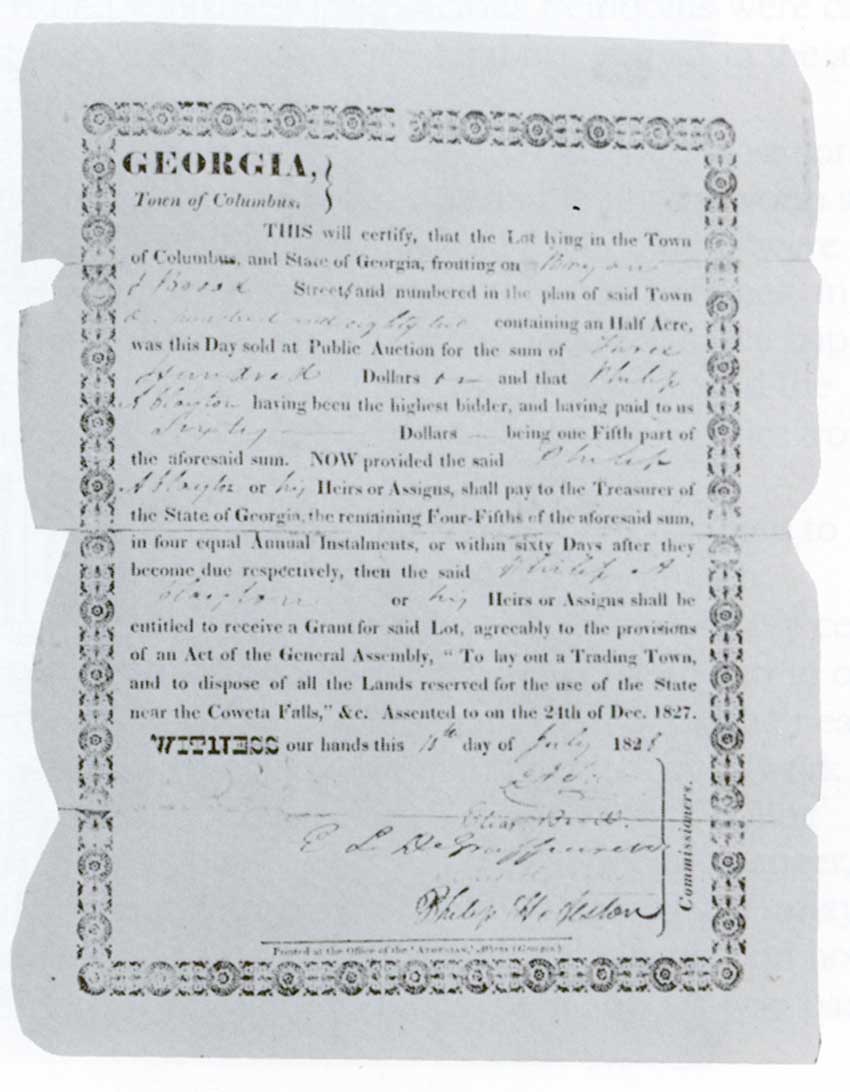 GEORGIA,
Town of Columbus.
THIS will certify, that the Lot lying in the Town
of Columbus, and State of Georgia, fronting on Bryan
& Broad Streets and numbered in the plan of said Town
hundred and eighty containing an Half Acre,
was this Day sold at Public Auction for the sum of Three
Hundred Dollars and that Philip
A Clayton having been the highest bidder, and having paid to us
Sixty Dollars being one Fifth part of
the aforesaid sum. NOW provided the said Philip
A Clayton or his Heirs or Assigns, shall pay to the Treasurer of
the State of Georgia, the remaining Four-Fifths of the aforesaid sum,
in four equal Annual Instalments, or within sixty Days after they
become due respectively, then the said Philip A
Clayton or his Heirs or Assigns shall be
entitled to receive a Grant for said Lot, agreeably to the provisions
of an Act of the General Assembly, " To lay out a Trading Town,
and to dispose of all the Lands reserved for the use of the State
near the Coweta Falls," &c. Assented to on the 24th of Dec. 1827.
WITNESS our hands this day of July 1828
E L DeGraffenried
Philip H. Alston
Commissioners.
Printed at the Office of the